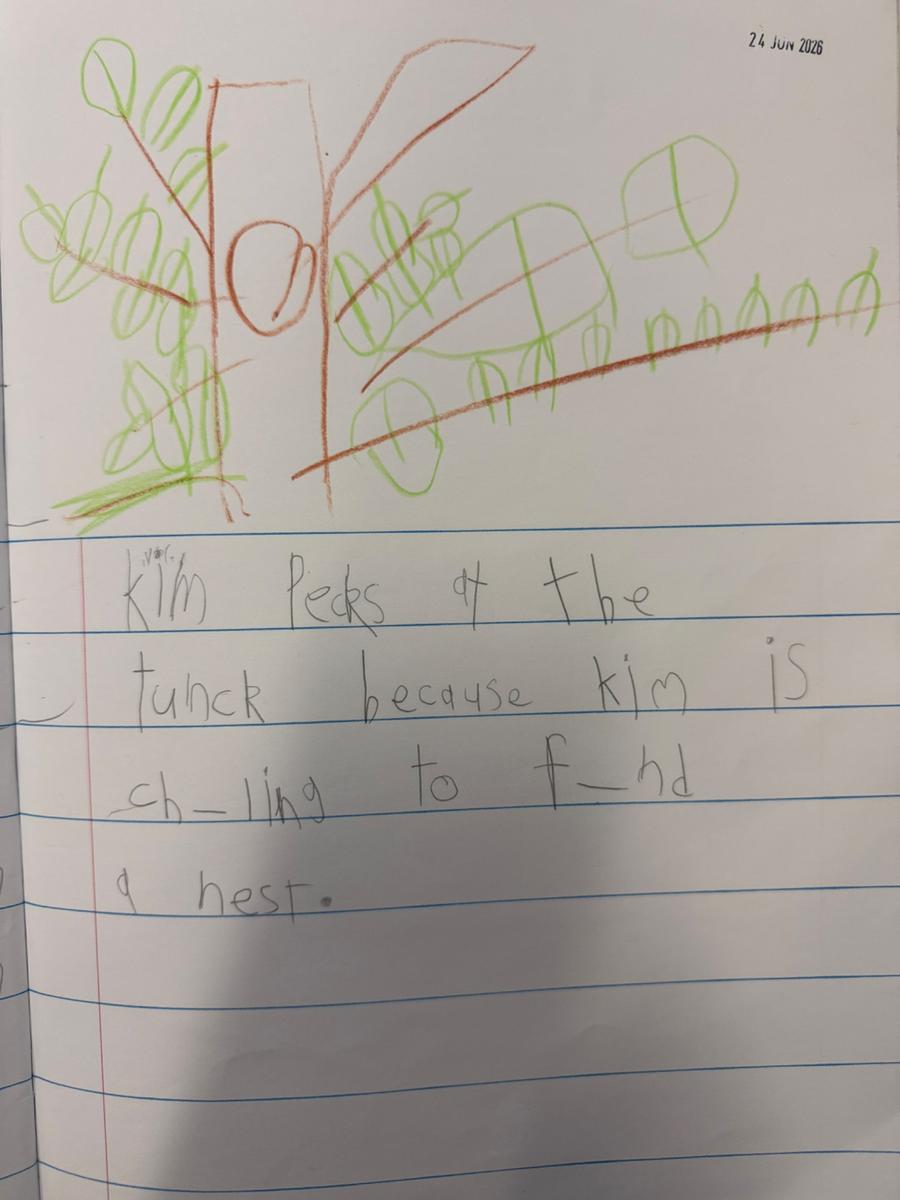 24 JUN 2026
kim Pecks at the
tunck because kim is
ch_ling to f_nd
a nest.